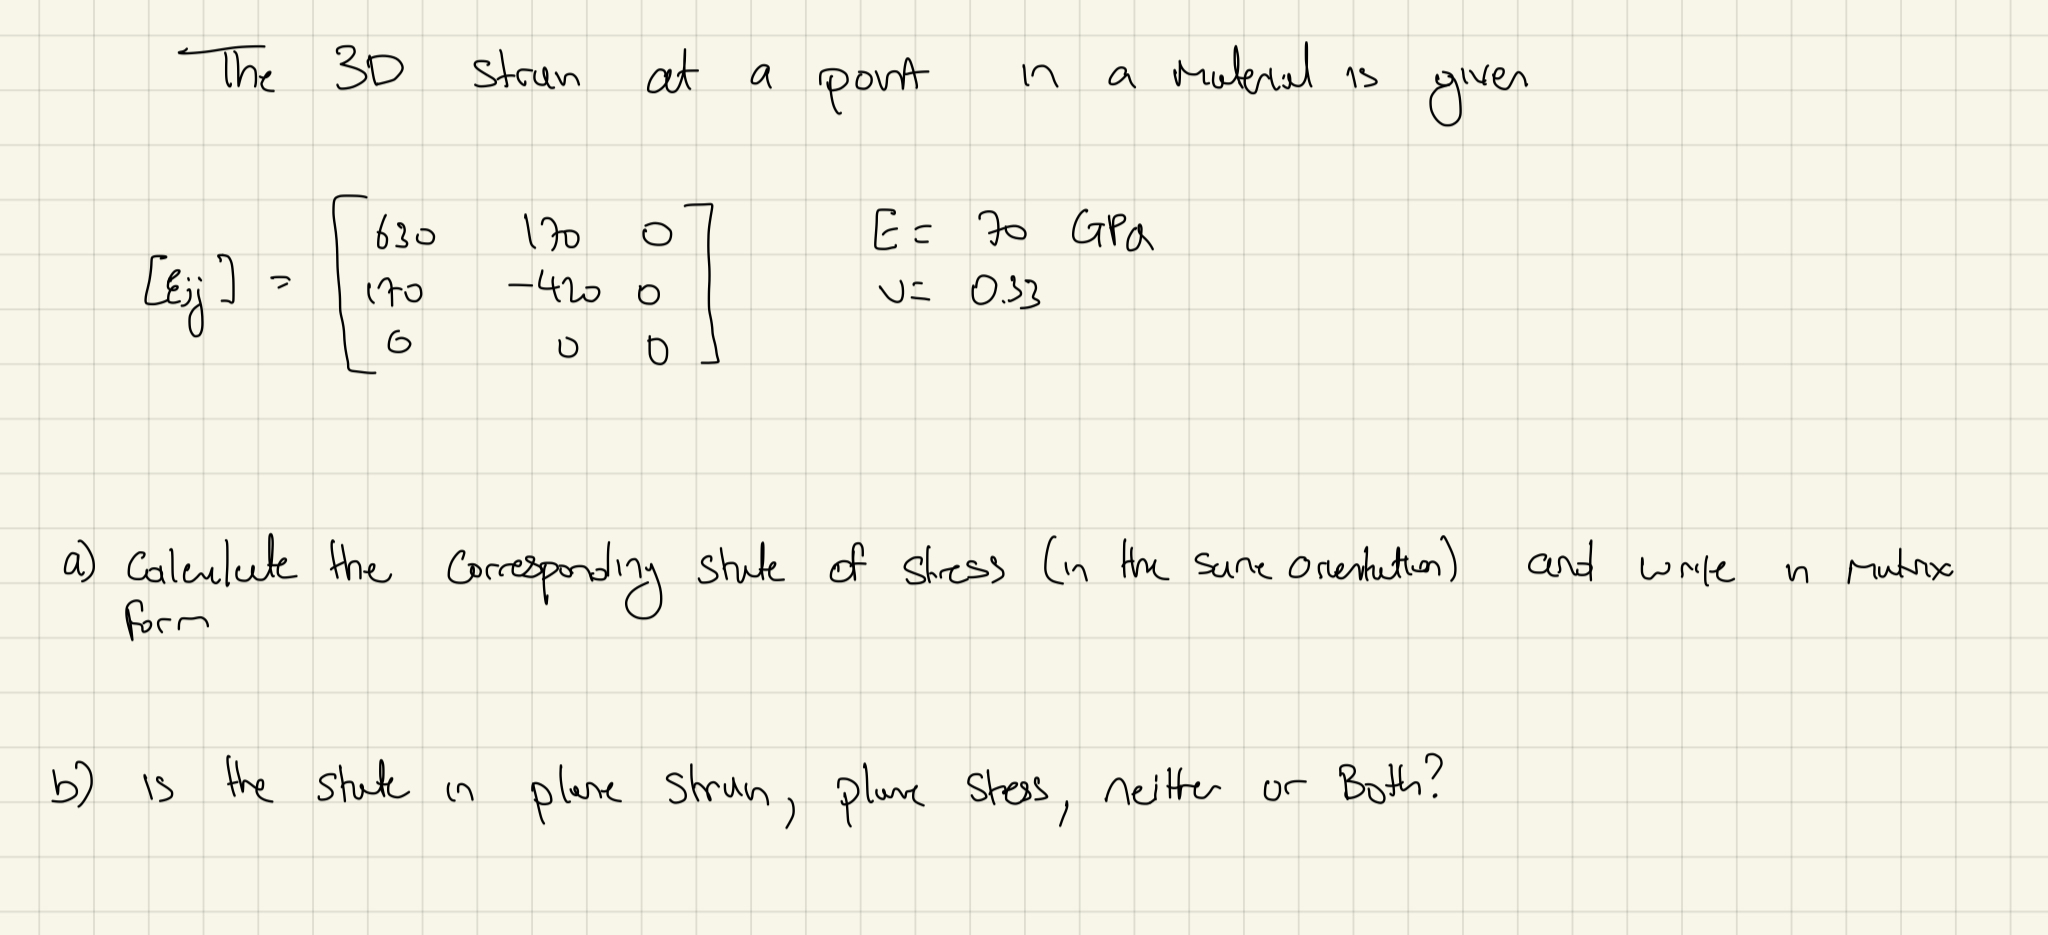 The 3D strain at a point in a material is given
[εij] = [630 170 0
170 -420 0
0 0 0]
E = 70 GPa
ν = 0.33
a) Calculate the corresponding state of stress (in the same orientation) and write in matrix
form
b) is the state in plane strain, plane stess, neither or Both?